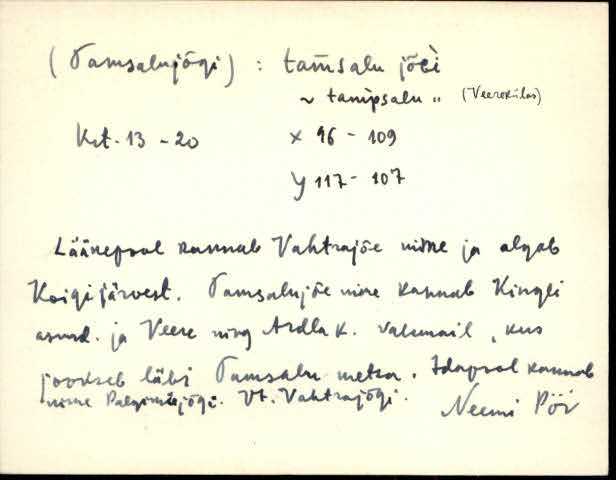 (Tamsalujõgi) : tam̄salu jõɢì
~ tam̀psalu " (Veerekülas)
Krt. 13 - 20 x 96 - 109
y 117 - 107
Läänepool kannab Vahtrajõe nime ja algab
Koigi järvest. Tamsalujõe nime kannab Kingli
asund. ja Veere ning Ardla k. vahemail, kus
jookseb läbi Tamsalu metsa. Idapool kannab
nime jõgi. Vt. Vahtrajõgi.
Neemi Pöör